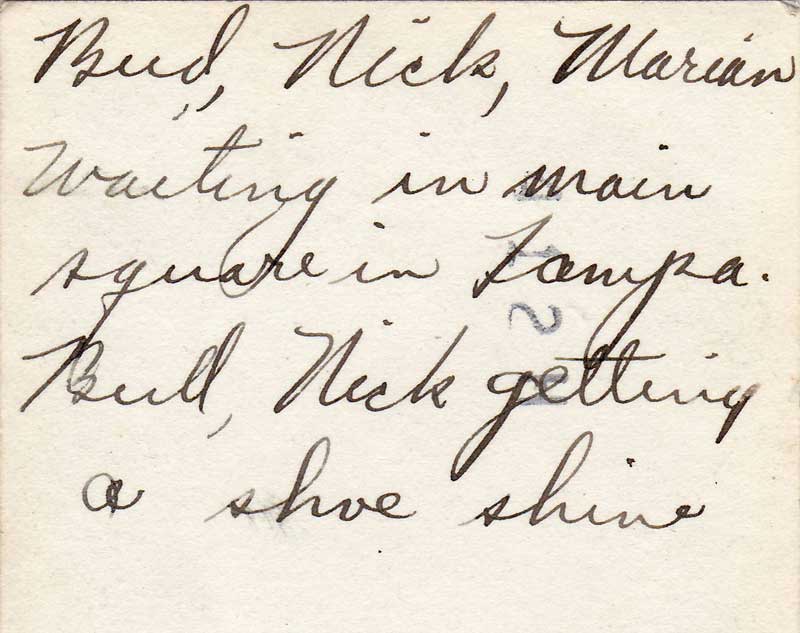 Bud, Nick, Marian
Waiting in main
square in Tampa.
Bud, Nick getting
a shoe shine